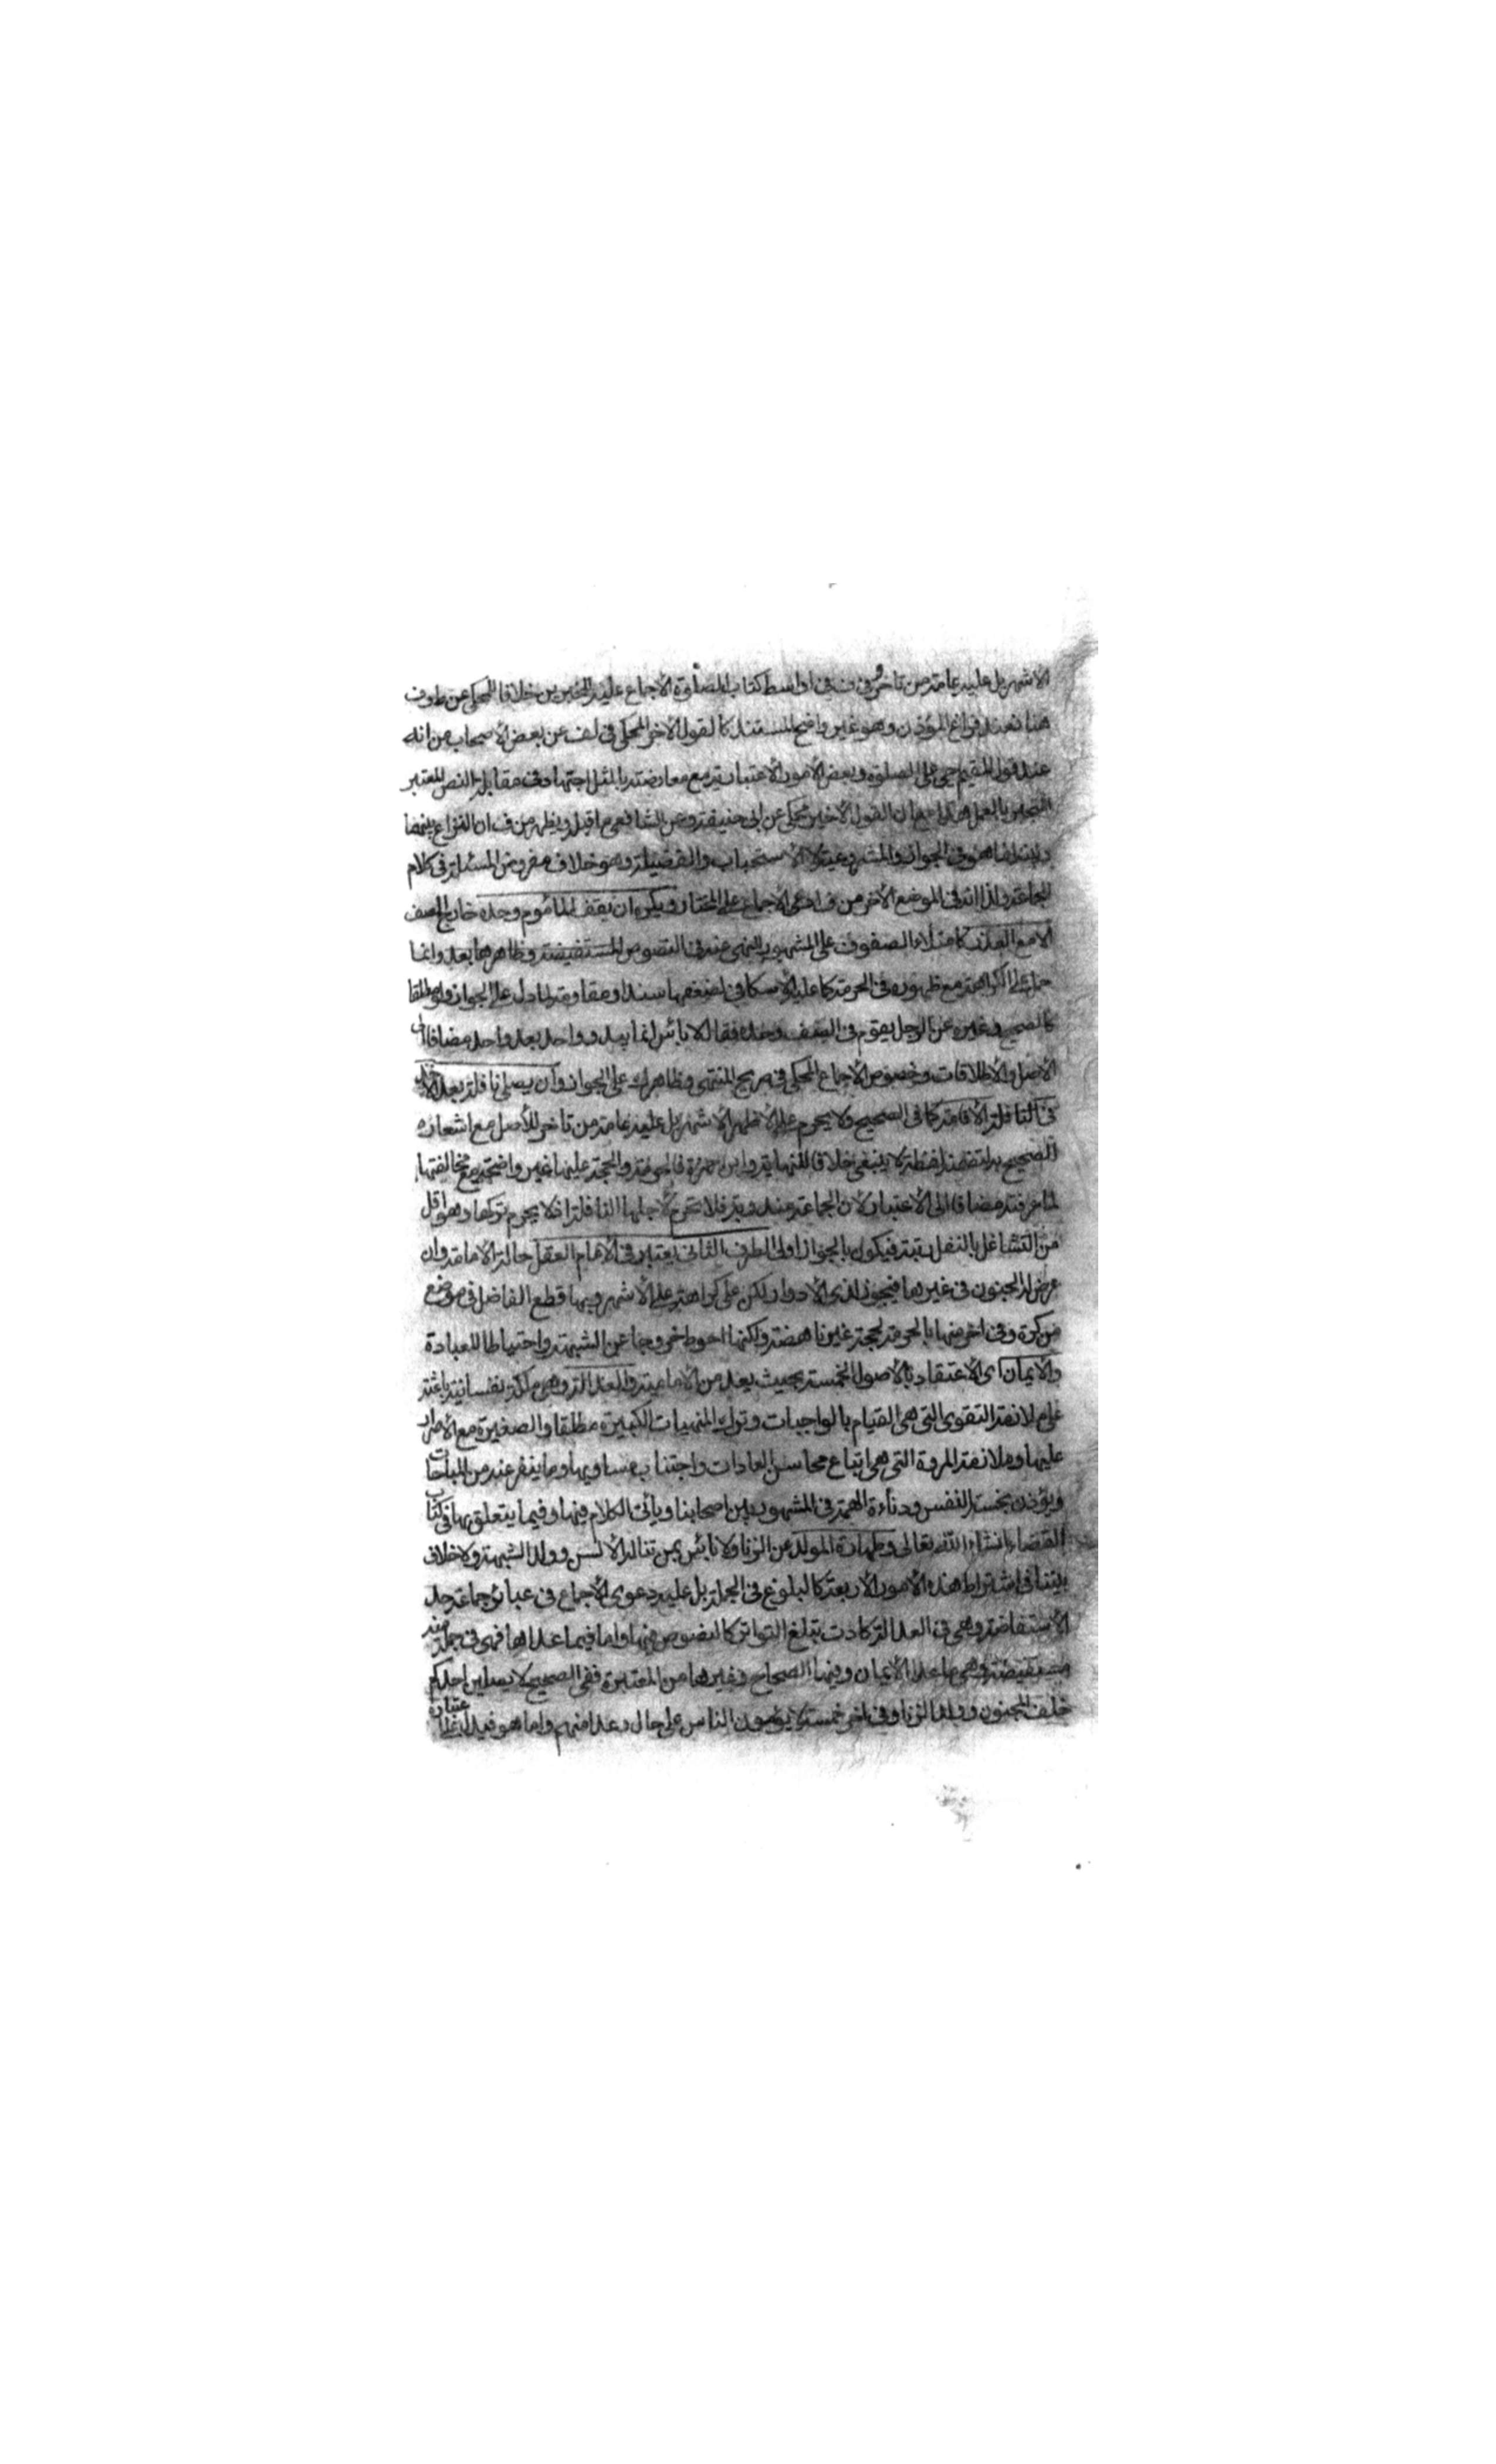 الاشهر بل عليه عامة من تاخر وفي ف في اواسط كتاب الصلوة الاجماع عليه للخبرين خلافا للمحكي عن ط وف
هنا فعند فراغ المؤذن وهو غير واضح المستند كالقول الاخر المحكي في لف عن بعض الاصحاب من انه
عند قول المقيم حي على الصلوة وبعض الامور الاعتبارية مع معارضته بالمثل اجتهاد في مقابلة النص المعتبر
بالعمل هذا مع ان القول الاخير محكي عن ابي حنيفة وعن الشافعي ما قبله ويظهر من ف ان النزاع بينهما
وبيننا انما هو في الجواز والمشروعية لا الاستحباب والفضيلة وهو خلاف مفروض المسئلة في كلام
الجماعة ولذا انه في الموضع الاخر من ف ادعى الاجماع على المختار ويكره ان يقف الماموم وحده خارج الصف
الا مع العذر كامتلاء الصفوف على المشهور للنهي عنه في النصوص المستفيضة وظاهرها بعد وانما
حمل على الكراهة مع ظهوره في الحرمة كما عليه الاسكافي لضعفها سندا ومقاومة لما دل على الجواز ولو مطلقا
كالصحيح وغيره عن الرجل يقوم في الصف وحده فقال لا باس انما يبدو واحد بعد واحد مضافا الى
الاصل والاطلاقات وخصوص الاجماع المحكي في صريح المنتهى وظاهر ك على الجواز وان يصلي نافلة بعد الاخذ
في النافلة الاقامة كما في الصحيح ولا يحرم على الاظهر الاشهر بل عليه عامة من تاخر للاصل مع اشعاره
الصحيح به لتضمنه لفظة لا ينبغي خلافا للنهاية وابن حمزة فالحرمة والحجة عليها غير واضحة مع مخالفتها
لما عرفته مضافا الى الاعتبار لان الجماعة مندوبة فلا تحرم لاجلها النافلة اذ لا يحرم تركها وهو اقل
من التشاغل بالنفل رتبة فيكون بالجواز اولى الطرف الثاني يعتبر في الامام العقل حالة الامامة وان
عرض له الجنون في غيرها فيجوز لذي الادوار لكن على كراهة على الاشهر وبها قطع الفاضل في موضع
من كرة وفي اخر منها بالحرمة لحجة غير ناهضة ولكنها احوط خروجا عن الشبهة واحتياطا للعبادة
والايمان اى الاعتقاد بالاصول الخمسة بحيث يعد من الامامية والعدالة وهي ملكة نفسانية باعثة
على ملازمة التقوى التي هي القيام بالواجبات وترك المنهيات الكبيرة مطلقا والصغيرة مع الاصرار
عليها وملازمة المروة التي هي اتباع محاسن العادات واجتناب مساويها وما ينفر عنه من المباحات
ويؤذن بخسة النفس ودناءة الهمة في المشهور بين اصحابنا وياتي الكلام فيها وفيما يتعلق بها في كتاب
القضاء انشاء الله تعالى وطهارة المولد عن الزنا ولا باس بمن تناله الالسن وولد الشبهة ولا خلاف
بيننا في اشتراط هذه الامور الاربعة كالبلوغ في الجملة بل عليه دعوى الاجماع في عبائر جماعة حد
الاستفاضة وهي في العدالة كادت تبلغ التواتر كالنصوص فيها واما فيما عداها فهي في جملة منه
مستفيضة وهي ما عدا الايمان وفيها الصحاح وغيرها من المعتبرة ففي الصحيح لا يصلين احدكم
خلف المجنون وولد الزنا وفي اخر خمسة لا يؤمون الناس على حال وعدا منهم واما هو فيدل على اعتباره